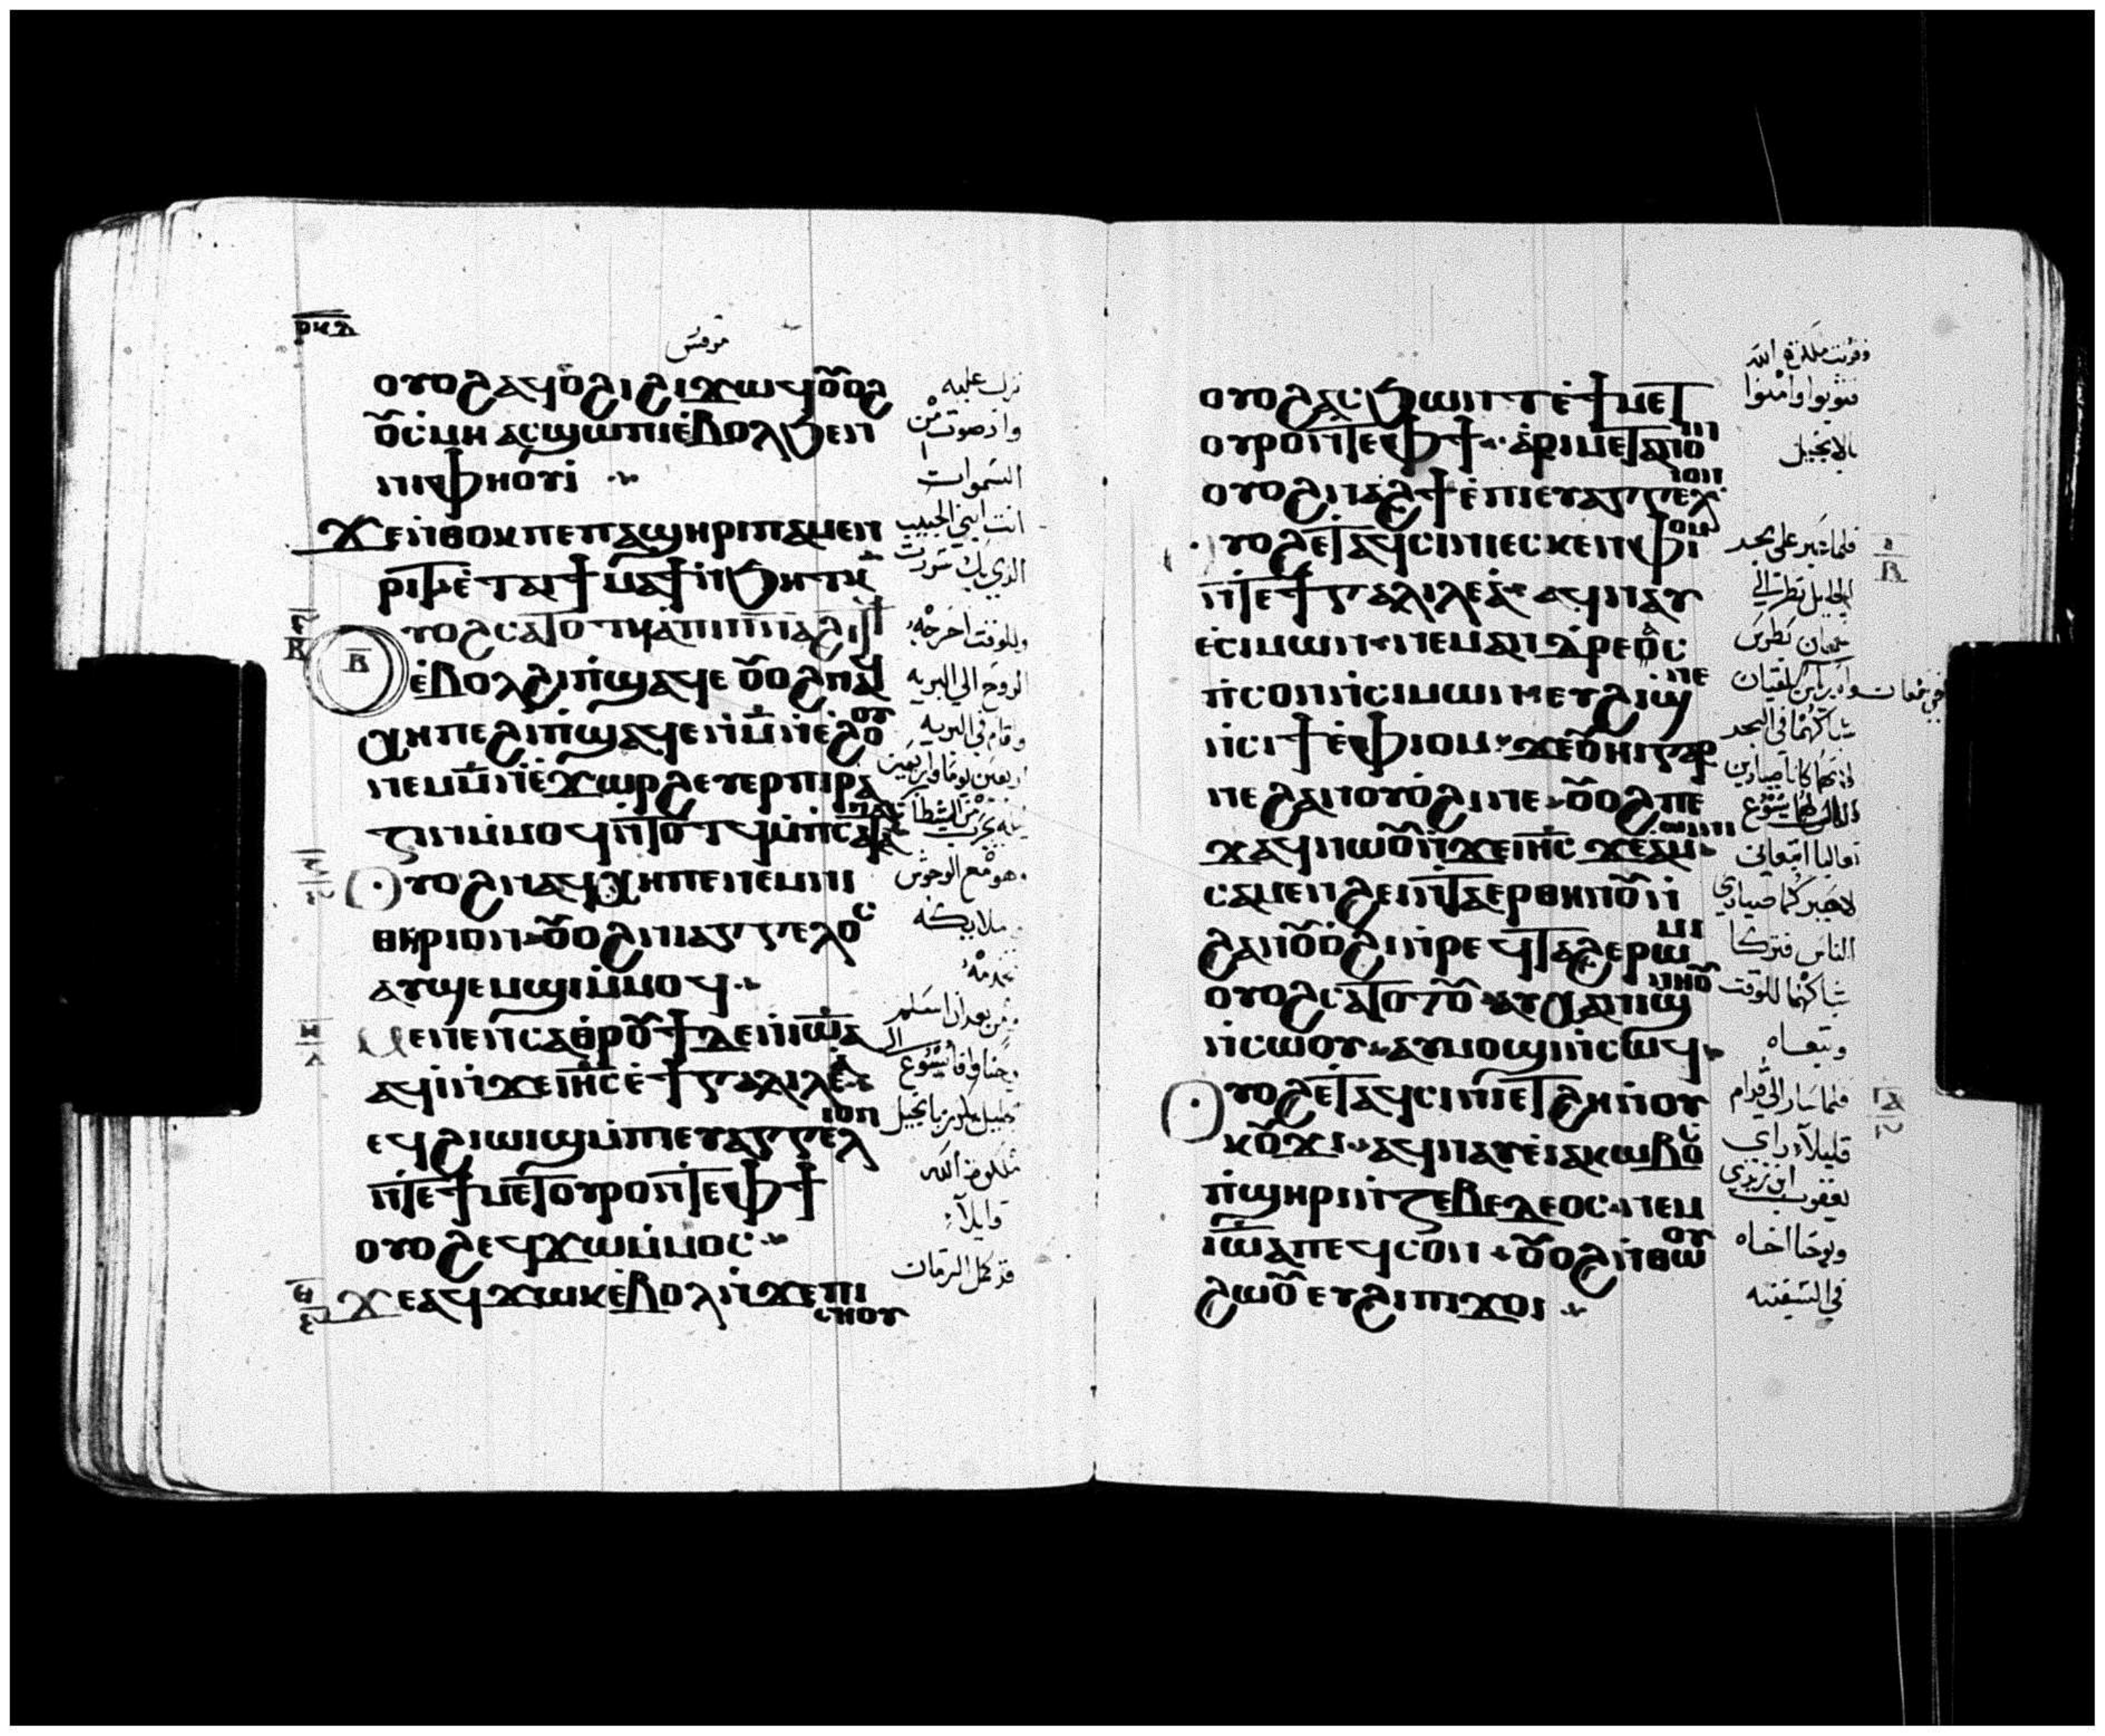 ⲣⲕⲇ
مرقس
ⲟⲩⲟϩ ⲁϥⲟ̇ϩⲓ ϩⲓϫⲱϥ ⲟⲩⲟϩ
ⲟⲩⲥ̇ⲙⲏ ⲁⲥϣⲱⲡⲓ ⲉ̇ⲃⲟⲗ ϧⲉⲛ
ⲛⲓⲫⲏⲟⲩⲓ̇
ϫⲉ ⲛ̇ⲑⲟⲕ ⲡⲉ ⲡⲁϣⲏⲣⲓ ⲡⲁⲙⲉⲛ
ⲣⲓⲧ ⲉ̇ⲧⲁⲓϯⲙⲁϯ ⲛ̇ϧⲏⲧⲕ
ⲟⲩⲟϩ ⲥⲁⲧⲟⲧϥ ⲁ̇ ⲡⲓⲡ̅ⲛ̅ⲁ̅ ϩⲓⲧϥ
ⲉ̇ⲃⲟⲗ ϩⲓ ⲡ̇ϣⲁϥⲉ ⲟⲩⲟϩ ⲛⲁϥ
ⲭⲏ ⲡⲉ ϩⲓ ⲡ̇ϣⲁϥⲉ ⲛ̇ⲙ̅ ⲛ̇ⲉ̇ϩⲟⲟⲩ
ⲛⲉⲙ ⲙ̅ ⲛ̇ⲉ̇ϫⲱⲣϩ ⲉⲩⲉⲣⲡⲓⲣⲁ
ⲍⲓⲛ ⲙ̇ⲙⲟϥ ⲛ̇ⲧⲟⲧϥ ⲙ̇ⲡ̇ⲥⲁⲧⲁⲛⲁⲥ
ⲟⲩⲟϩ ⲛⲁϥⲭⲏ ⲡⲉ ⲛⲉⲙ ⲛⲓ
ⲑⲏⲣⲓⲟⲛ ⲟⲩⲟϩ ⲛⲓⲁⲅⲅⲉⲗⲟⲥ
ⲁⲩϣⲉⲙϣⲓ ⲙ̇ⲙⲟϥ
ⲙⲉⲛⲉⲛⲥⲁ ⲑⲣⲟⲩϯ ⲇⲉ ⲛ̇ⲓⲱ̅ⲁ̅
ⲁϥⲓ̇ ⲛ̇ϫⲉ ⲓⲏ̅ⲥ̅ ⲉ̇ϯⲅⲁⲗⲓⲗⲉⲁ̇
ⲉϥϩⲓⲱⲓϣ ⲙ̇ⲡⲓⲉⲩⲁⲅⲅⲉⲗⲓⲟⲛ
ⲛ̇ⲧⲉ ϯⲙⲉⲧⲟⲩⲣⲟ ⲛ̇ⲧⲉ ⲫϯ
ⲟⲩⲟϩ ⲉϥϫⲱ ⲙ̇ⲙⲟⲥ
ϫⲉ ⲁϥϫⲱⲕ ⲉ̇ⲃⲟⲗ ⲛ̇ϫⲉ ⲡⲓ
ⲥⲏⲟⲩ
نزل عليه
واذ صوت من
السموات
انت ابني الحبيب
الذي بك سررت
وللوقت اخرجه
الروح الي البريه
وقام في البريه
اربعين يوما واربعين
وهو مع الوحوش
ملايكه
تخدمه
من بعد ان اسلم
قايلا
قد كمل الزمان
ⲟⲩⲟϩ ⲁⲥϧⲱⲛⲧ ⲉ̇ϯⲙⲉⲧ
ⲟⲩⲣⲟ ⲛ̇ⲧⲉ ⲫϯ ⲁ̇ⲣⲓⲙⲉⲧⲁⲛⲟⲓⲛ
ⲟⲩⲟϩ ⲛⲁϩϯ ⲉ̇ⲡⲓⲉⲩⲁⲅⲅⲉⲗⲓⲟⲛ
ⲟⲩⲟϩ ⲉⲧⲁϥⲥⲓⲛⲓ ⲉⲥⲕⲉⲛ ⲫⲓⲟⲙ
ⲛ̇ⲧⲉ ϯⲅⲁⲗⲓⲗⲉⲁ̇ ⲁϥⲛⲁⲩ
ⲉ̇ⲥⲓⲙⲱⲛ ⲛⲉⲙ ⲁⲛⲇⲣⲉⲟ̇ⲥ
ⲡ̇ⲥⲟⲛ ⲛ̇ⲥⲓⲙⲱⲛ ⲛⲉ ⲉⲩϩⲓⲱⲓ
ⲛ̇ⲥⲓϯ ⲉ̇ⲫⲓⲟⲙ ϫⲉ ⲟⲩⲏⲓ ⲅⲁⲣ
ⲛⲉ ϩⲁⲛⲟⲩⲟ̇ϩⲓ ⲛⲉ ⲟⲩⲟϩ ⲡⲉ
ϫⲁϥ ⲛⲱⲟⲩ ⲛ̇ϫⲉ ⲓⲏ̅ⲥ̅ ϫⲉ ⲁⲙⲱⲓⲛⲓ
ⲥⲁⲙⲉⲛϩⲏⲓ ⲛ̇ⲧⲁⲉⲣ ⲑⲏⲛⲟⲩ ⲛ̇
ϩⲁⲛⲟⲩⲟ̇ϩⲓ ⲛ̇ⲣⲉϥⲧⲁϩⲉ ⲣⲱⲙⲓ
ⲟⲩⲟϩ ⲥⲁⲧⲟⲧⲟⲩ ⲁⲩⲭⲁ ⲛⲓϣⲛⲏⲟⲩ
ⲛ̇ⲥⲱⲟⲩ ⲁⲩⲙⲟϣⲓ ⲛ̇ⲥⲱϥ
ⲟⲩⲟϩ ⲉⲧⲁϥⲥⲓⲛⲓ ⲉⲧϩⲏ ⲛ̇ⲟⲩ
ⲕⲟⲩϫⲓ ⲁϥⲛⲁⲩ ⲉ̇ⲓⲁⲕⲱⲃⲟⲥ
ⲡ̇ϣⲏⲣⲓ ⲛ̇ⲍⲉⲃⲉⲇⲉⲟⲥ ⲛⲉⲙ
ⲓⲱ̅ⲁ̅ ⲡⲉϥⲥⲟⲛ ⲟⲩⲟϩ ⲛ̇ⲑⲱⲟⲩ
ϩⲱⲟⲩ ⲉⲩϩⲓ ⲡⲓϫⲟⲓ
وقربت ملكوة الله
فتوبوا وامنوا
بالانجيل
الجليل نظر الي
سمعان بطرس
شباكهما في البحر
لانهما كانا صيادين
تعاليا اتبعاني
الناس فتركا
شباكهما للوقت
وتبعاه
فلما سار الي قدام
قليلا راي
يعقوب ابن زبدي
ويوحنا اخاه
في السفينه